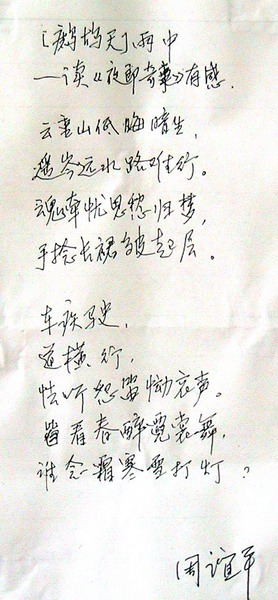 [鹧鸪天]雨中
—读《夜郎奇事》有感.
云重山低晦暗生,
遥岑远水路难行。
魂牵忧思愁归梦,
手捻长裙皱起层。
车疾驶,
道横行,
怯听怨笛恸哀声。
皆看春醉霓裳舞,
谁念霜寒雪打灯?
周谊平